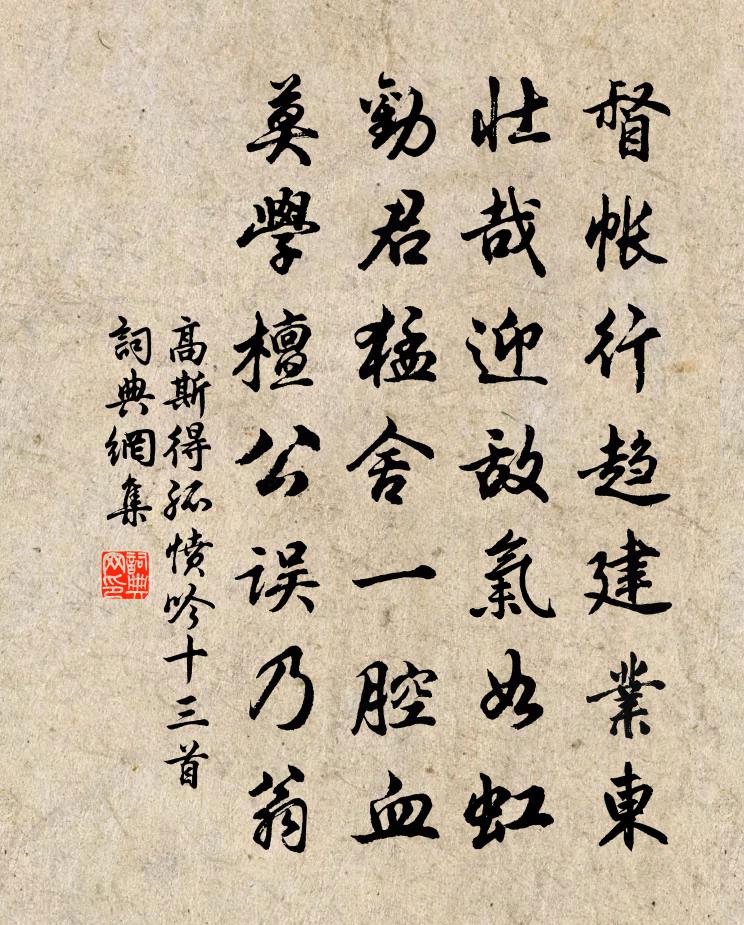 督帐行趋建業東
壮哉迎敌氣如虹
勸君猛舍一腔血
莫學檀公误乃翁
高斯得孤愤吟十三首
詞典網集
詞典
网印